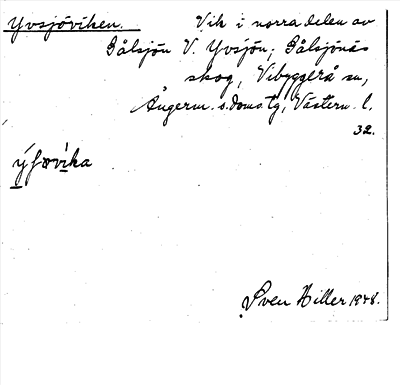 Yvsjöviken. Vik i norra delen av
Gålsjön V. Yvsjön; Gålsjönäs
skog, Vibyggerå sn,
Ångerm. s. doms. tg, Västern. l.
32.
ýſøvíka
Sven Hiller 1948.